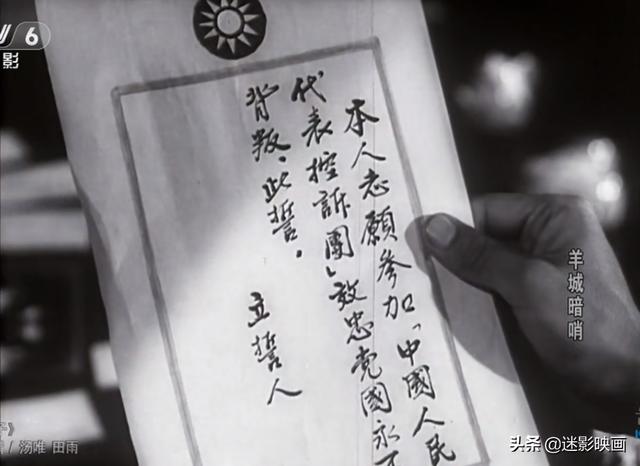 6
影
本人志願参加「中國人民
代表控訴團」效忠党國永不
背叛，此誓。
立誓人
羊城暗哨
》
/ 汤唯 田雨
头条 @迷影映画